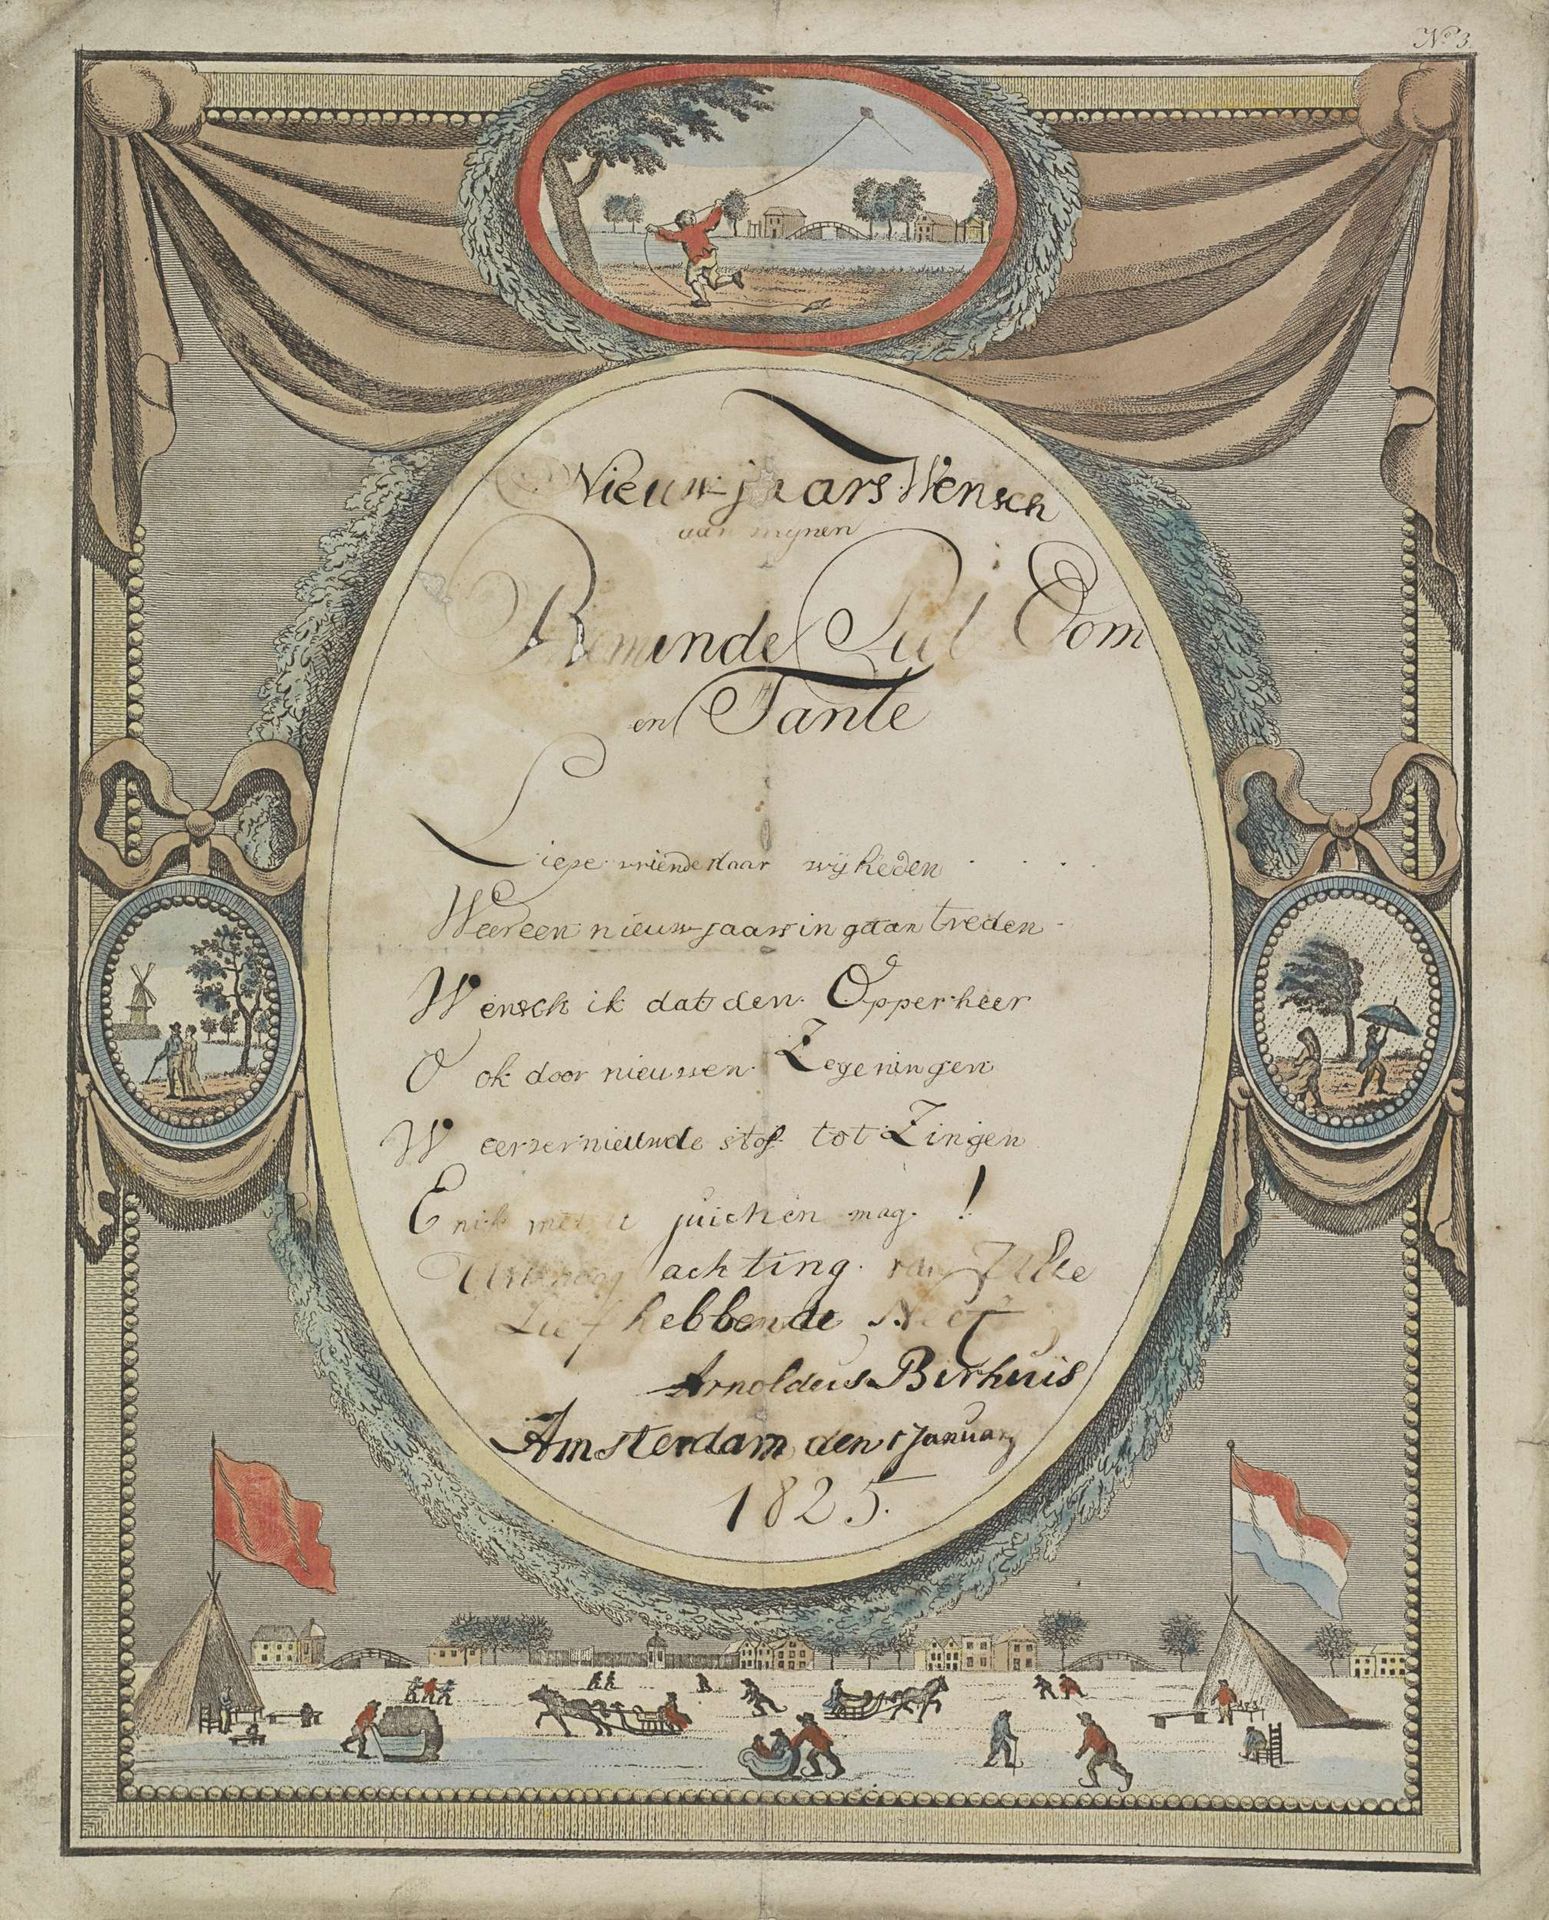 No 3.
Nieuw-jaars Wensch
aan mynen
Beminde Oom
en Tante
Lieve vriende daar wij heden
Weer een nieuw jaar in gaan treden
Wensch ik dat den Opperheer
Ook door nieuwen Zegeningen
Weer vernieuwde stof tot Zingen
En ik met u juichen mag. !
achting van
Liefhebbende Neef
Arnoldus Birhuis
Amsterdam den 1 January
1825.